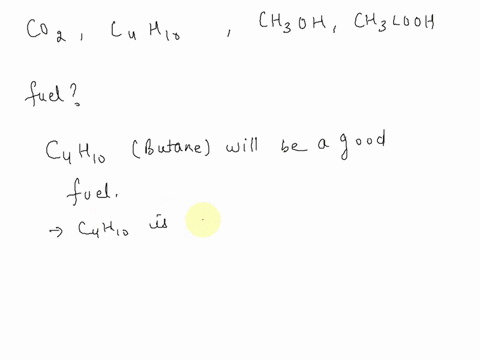 CO2, C4H10, CH3OH, CH3COOH
fuel?
C4H10 (Butane) will be a good
fuel.
→ C4H10 is